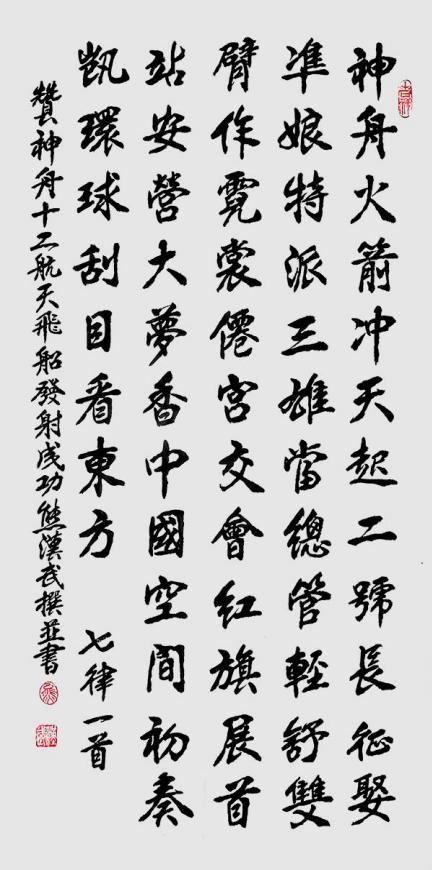 神舟火箭冲天起二號長征娶
凖娘特派三雄當總管輕舒雙
臂作霓裳僊宫交會红旗展首
站安營大夢香中國空間初奏
凱環球刮目看東方
七律一首
贊神舟十二航天飛船發射成功熊漢武撰並書